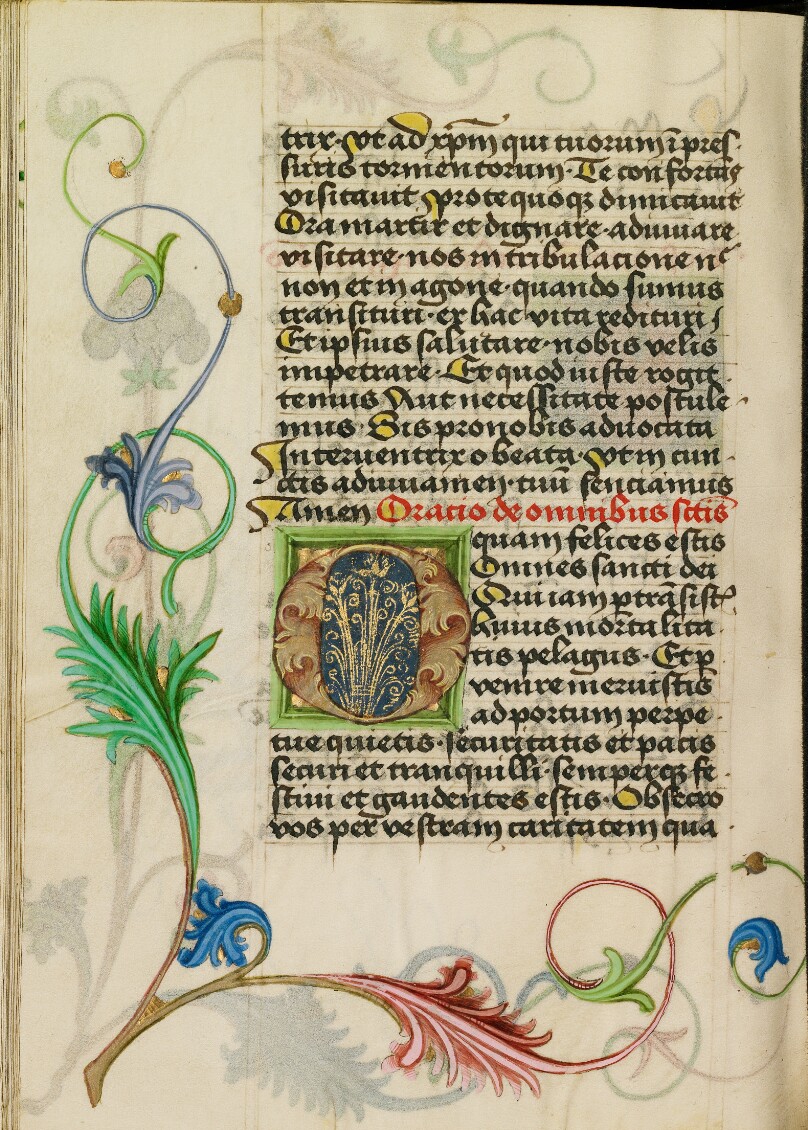 trix. vt ad xpm qui tuorum ī pres
suris tormentorum. Te confortās
visitauit. pro te quoqz dimicauit
Ora martir et dignare. adiuuare
visitare. nos in tribulacione nr̄
non et in agone. quando sumus
transituri. ex hac vita redituri/
Et ipsius salutare. nobis velis
impetrare. Et quod iuste rogit
temus Aut necessitate postule
mus. Sis pro nobis aduocata
Interuentrix o beata. vt in cun
ctis adiuuamen. tuū senciamus
Amen Oracio de omnibus sctīs
O quam felices estis
Omnes sancti dei
Qui iam ptrāsist
huius mortalita
tis pelagus. Et p
venire meruistis
ad portum perpe
tue quietis. securitatis et pacis
securi et tranquilli. semperqz fe
stiui et gaudentes estis. Obsecro
vos per vestram caritatem qua